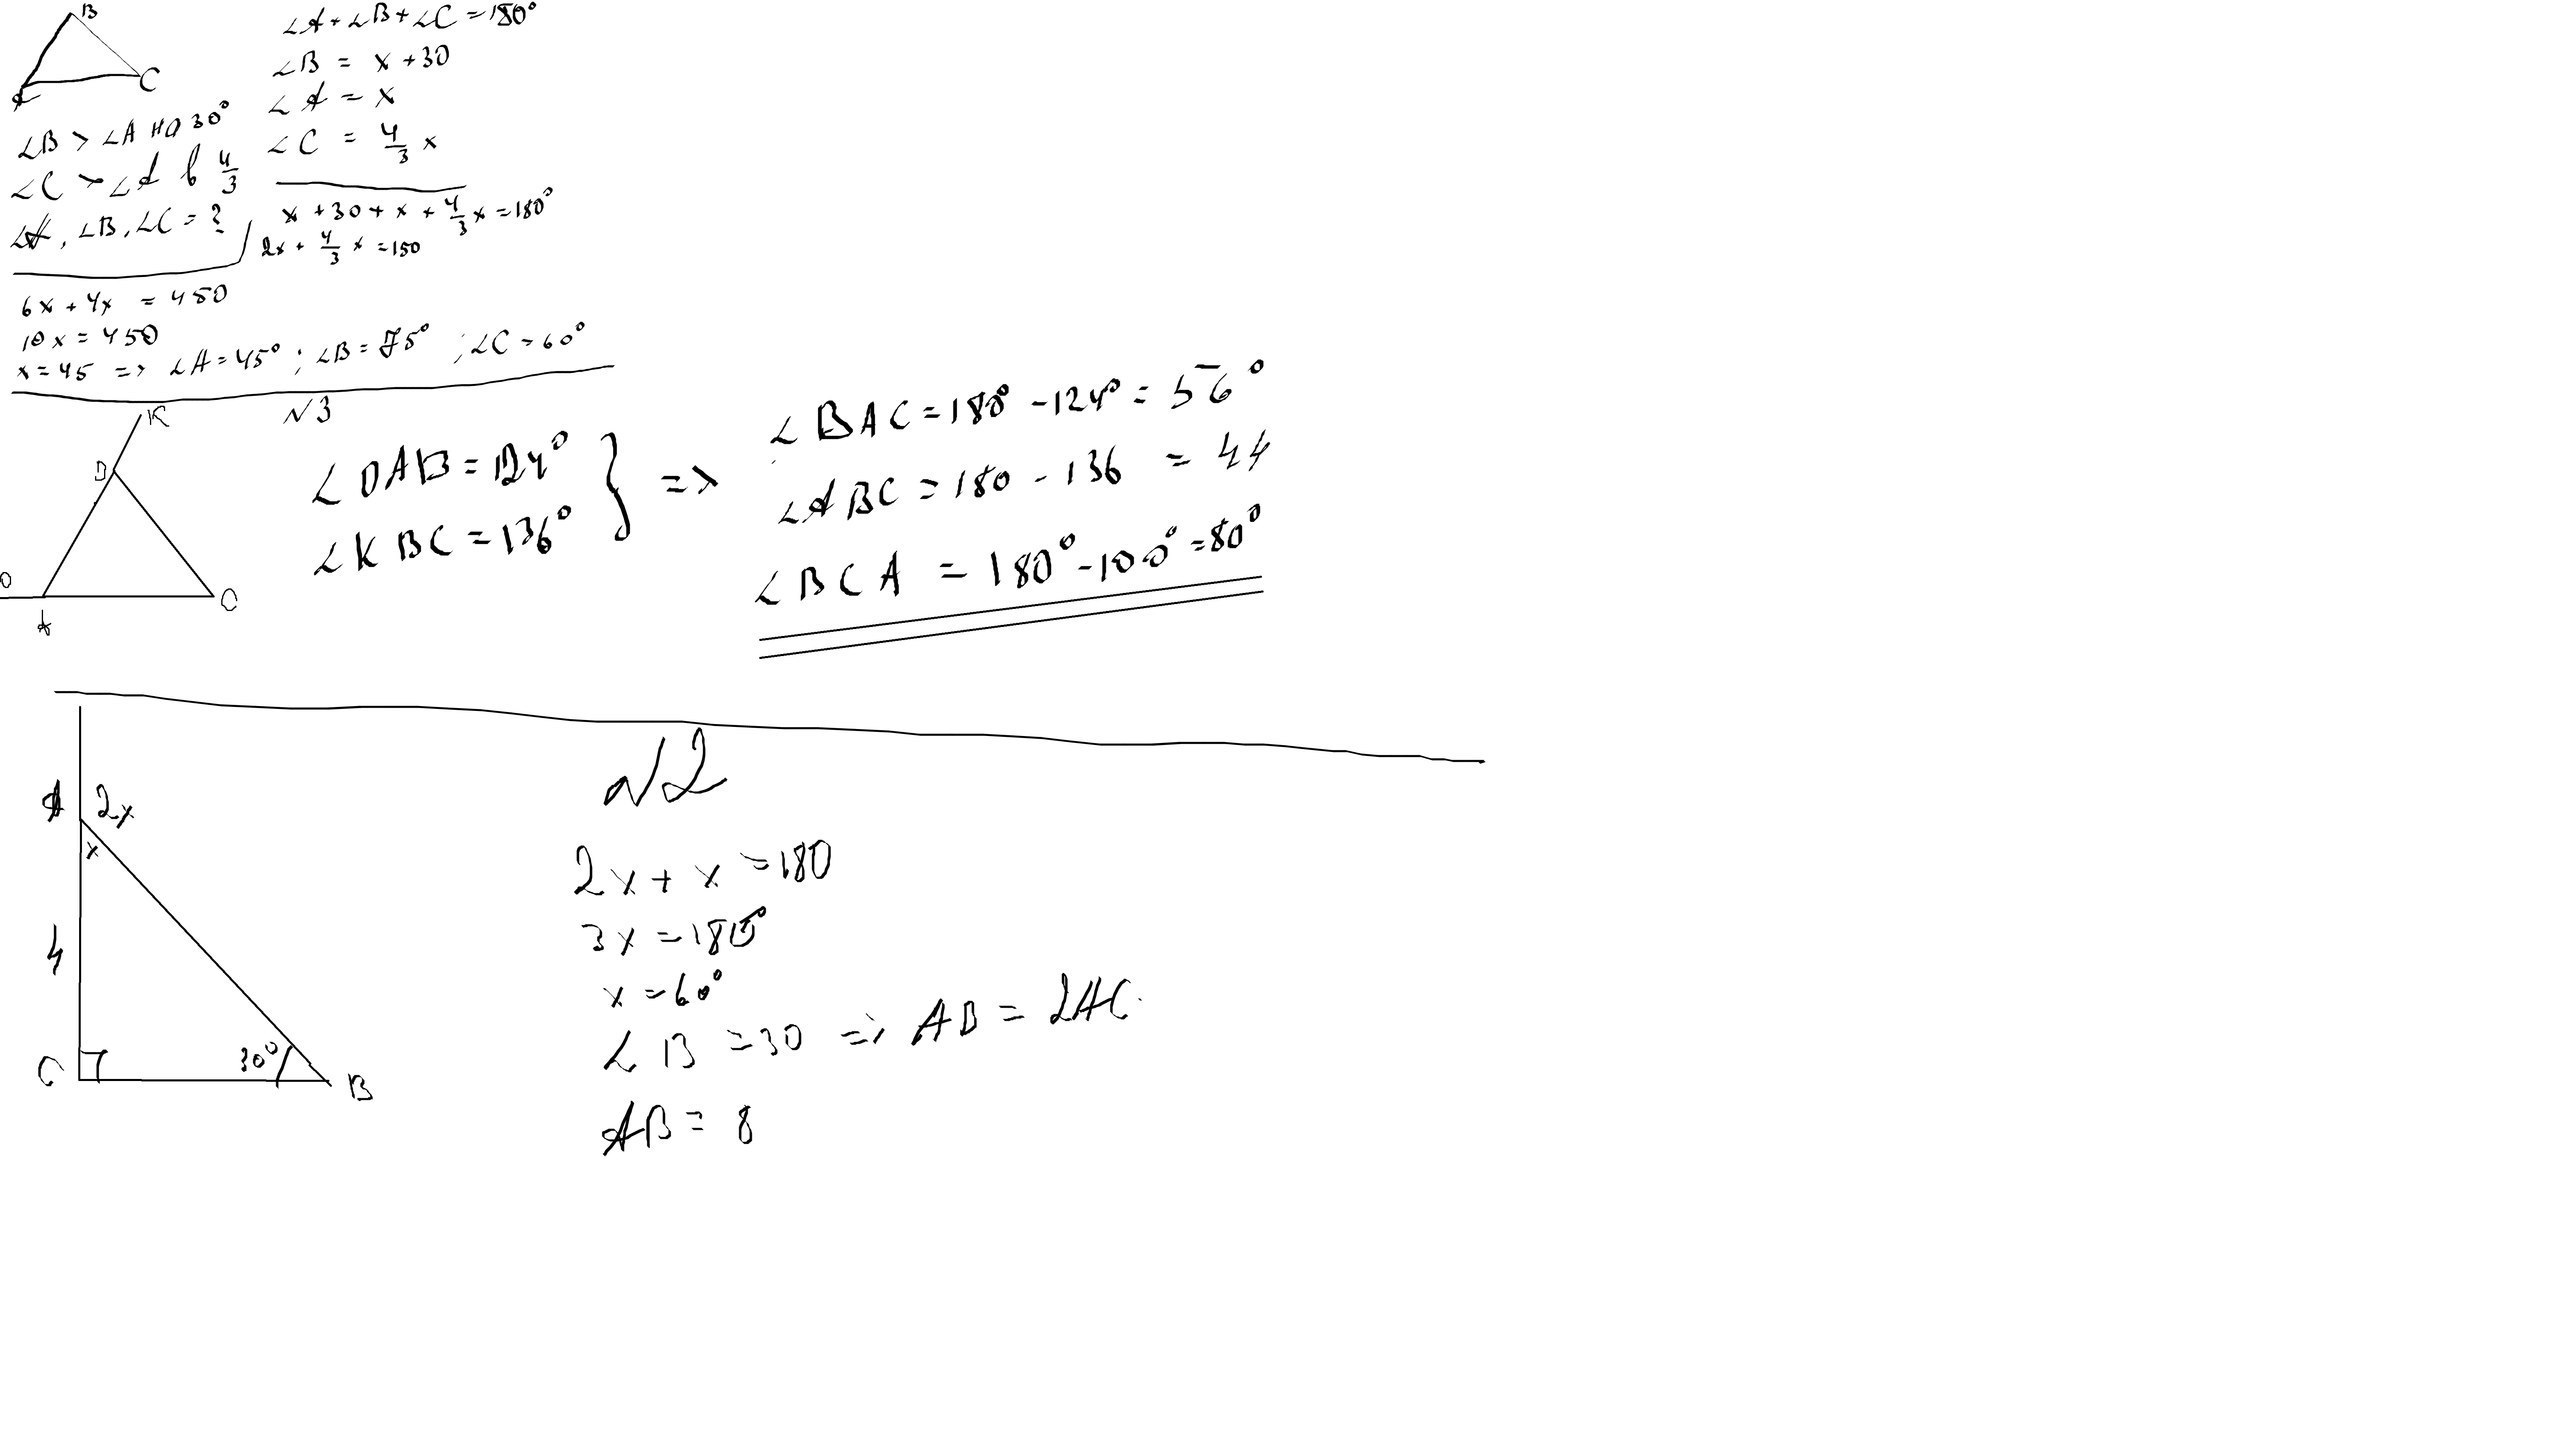 B
C
A
∠B > ∠A на 30°
∠C > ∠A в 4/3
∠A, ∠B, ∠C = ?
∠A + ∠B + ∠C = 180°
∠B = x + 30
∠A = x
∠C = 4/3 x
x + 30 + x + 4/3 x = 180°
2x + 4/3 x = 150
6x + 4x = 450
10x = 450
x = 45 => ∠A = 45° ; ∠B = 75° ; ∠C = 60°
N3
K
B
D
A
C
∠DAB = 124°
∠KBC = 136°
} =>
∠BAC = 180° - 124° = 56°
∠ABC = 180 - 136 = 44
∠BCA = 180° - 100° = 80°
N2
A 2x
x
4
C 30° B
2x + x = 180
3x = 180°
x = 60°
∠B = 30 => AB = 2AC
AB = 8